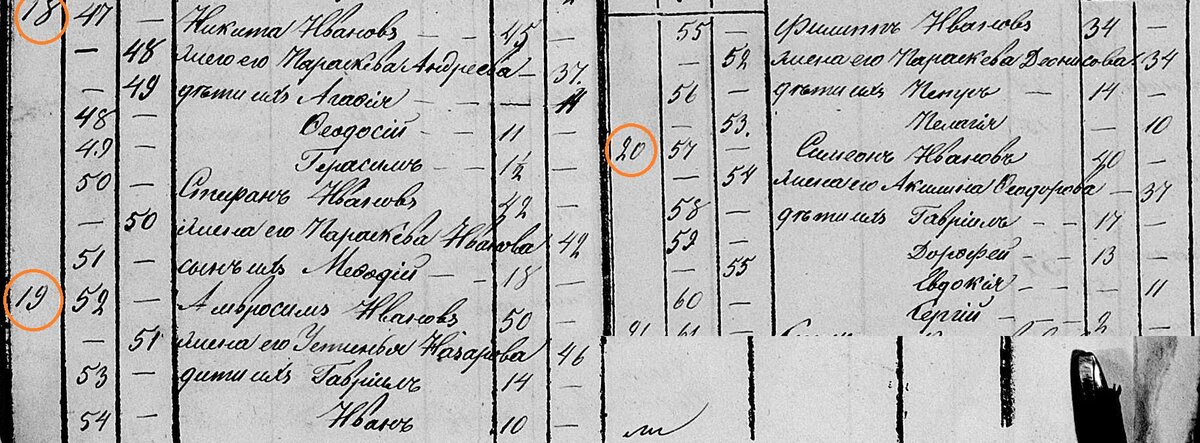 18 47 — Никита Ивановъ — — 45 —
— 48 жена его Параскева Андреева — 37
— 49 дѣти ихъ Агафія — — — 11
48 — Ѳеодосій — — 11 —
49 — Герасимъ — 1½ —
50 — Стиранъ Ивановъ 42 —
— 50 жена его Параскева Иванова 42
51 — сынъ ихъ Меѳодій — 18 —
19 52 — Амвросимъ Ивановъ 50 —
— 51 жена его Устинья Назарова 46
53 — дѣти ихъ Гавріилъ 14 —
54 — Иванъ 10 —
55 — Филиппъ Ивановъ 34 —
— 52 жена его Параскева Деонисова 34
56 — дѣти ихъ Петръ — 14 —
— 53. Пелагія — 10
20 57 — Симеонъ Ивановъ 40 —
— 54 жена его Акилина Ѳеодорова — 37
58 — дѣти ихъ Гавріилъ — — 17 —
59 — Дорофей — 13 —
— 55 Евдокія — — 11
60 — Сергій — 2
21 61 —